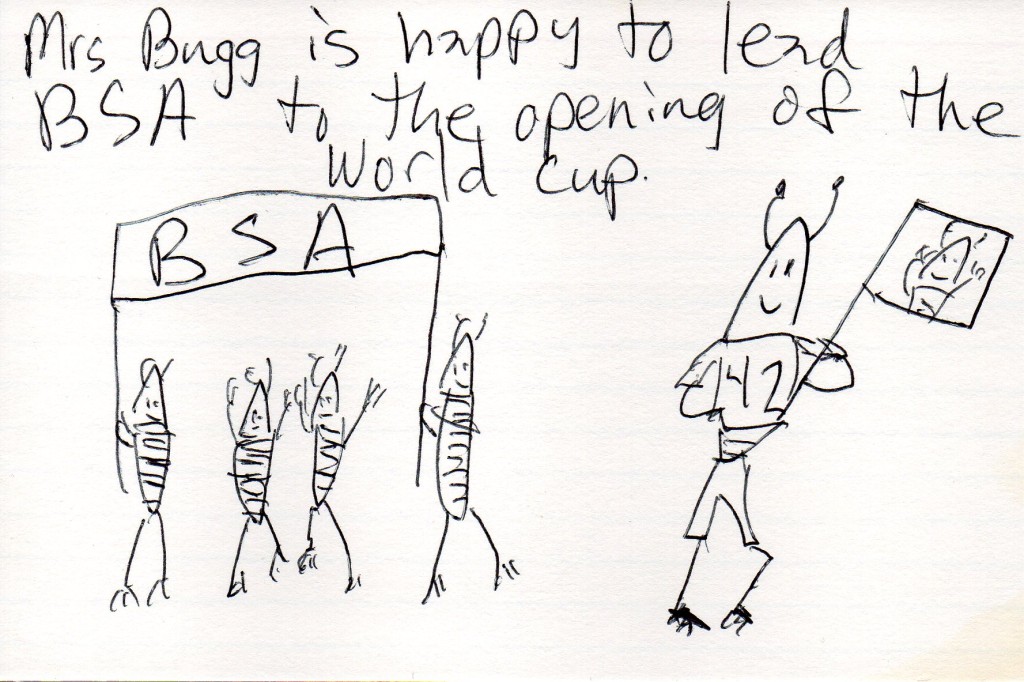 Mrs Bugg is happy to lead
BSA to the opening of the
World Cup.
BSA
42